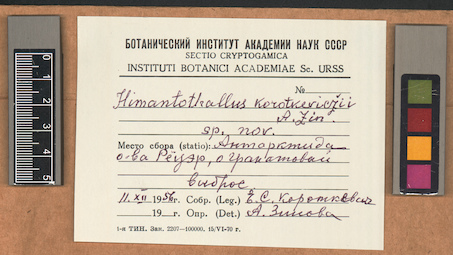 БОТАНИЧЕСКИЙ ИНСТИТУТ АКАДЕМИИ НАУК СССР
SECTIO CRYPTOGAMICA
INSTITUTI BOTANICI ACADEMIAE Sc. URSS
№
Himantothallus korotkeviczii
A. Zin.
sp. nov.
Место сбора (statio): Антарктида
о-ва Рёуэр, о Гранатовый
выброс
11. XII 1956 г. Собр. (Leg.) Е.С. Короткевич
19 г. Опр. (Det.) А. Зинова
1-я ТИН. Зак. 2207—100000. 15/VI-70 г.
0
1
2
3
4
5